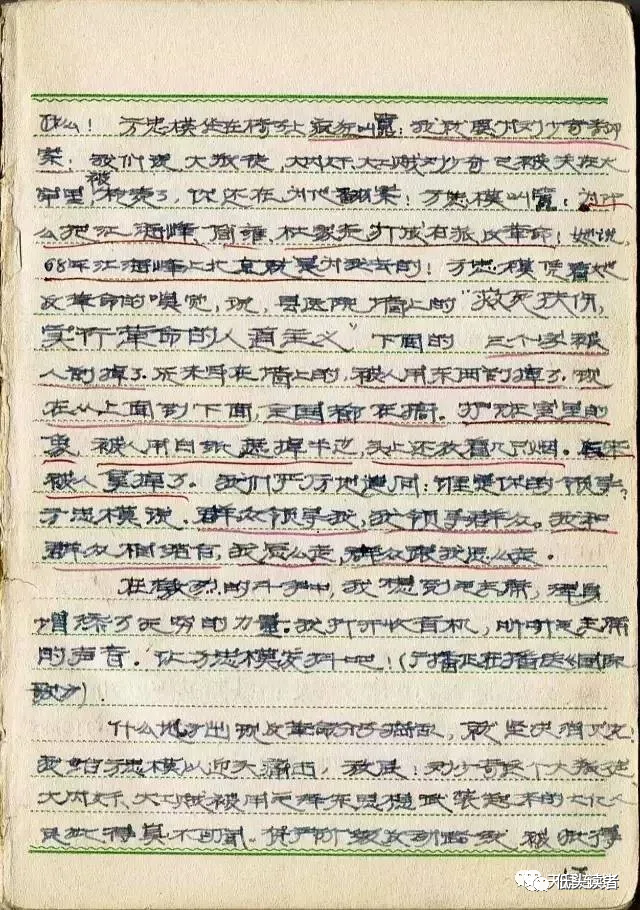 什么！方忠模坐在椅子上疯狂叫嚣：我就要为刘少奇翻
案！我们说大叛徒，大内奸，大工贼刘少奇已被关在大
牢里，被
了，你还在为他翻案！方忠模叫嚣：为什
么把江海峰，打成右派反革命！她说，
68年江海峰上北京就是为我去的！方忠模凭着她
反革命的嗅觉，说，县医院墙上的“救死扶伤，
实行革命的人道主义”下面的三个字被
人刮掉了。原来写在墙上的，被人用东西刮掉了。现
在从上面到下面，全国都在搞。护班室里的
像，被人用白纸遮掉半边，头上还放着几只烟。后来
被人拿掉了。我们严厉地追问：谁是你的领导？
方忠模说，群众领导我，我领导群众。我和
群众相结合，我怎么走，群众跟我怎么走。
在激烈的斗争中，我想到毛主席，浑身
增添了无穷的力量。我打开收音机，听听毛主席
的声音。让方忠模发抖吧！（广播正在播送《国际
歌》）。
什么地方出现反革命分子捣乱，就坚决消灭之！
我给方忠模以迎头痛击，我说：刘少奇这个大叛徒
大内奸、大工贼被用毛泽东思想武装起来的七亿人
民批得臭不可闻。资产阶级反动路线被批得